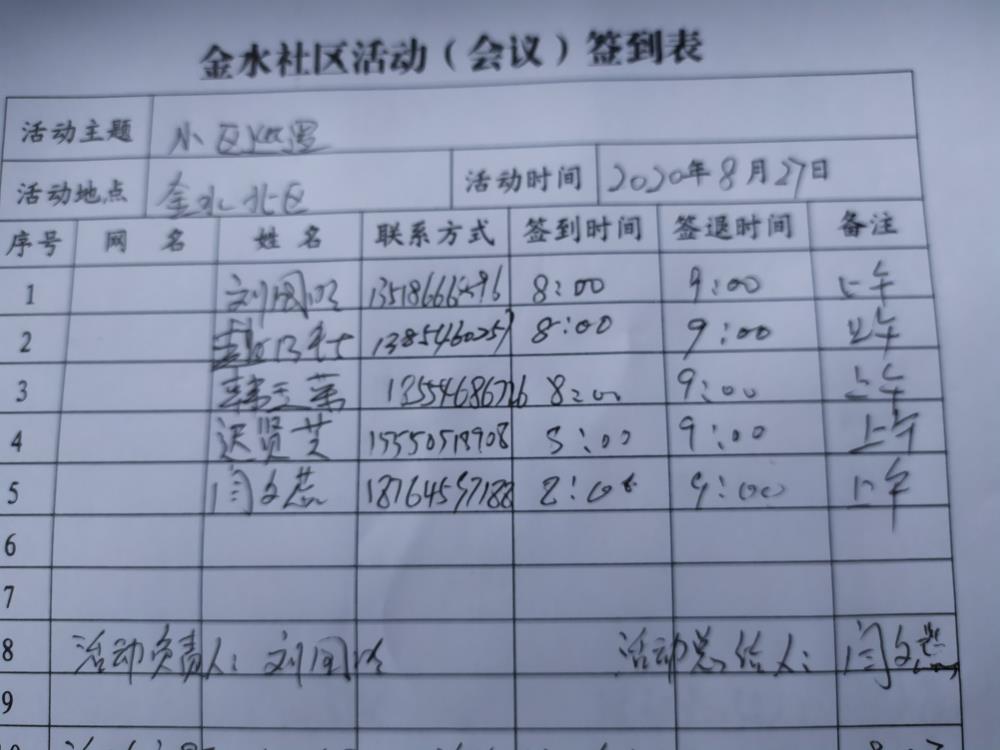 金水社区活动（会议）签到表
活动主题 小区巡逻
活动地点 金水北区 活动时间 2020年8月27日
序号 网名 姓名 联系方式 签到时间 签退时间 备注
1 刘国 8:00 9:00 上午
2 8:00 9:00 上午
3 韩玉 13554686726 8:00 9:00 上午
4 迟贤芝 15550519908 8:00 9:00 上午
5 闫文 18764597188 8:00 9:00 上午
6
7
8 活动负责人：刘国 活动总结人：闫文
9